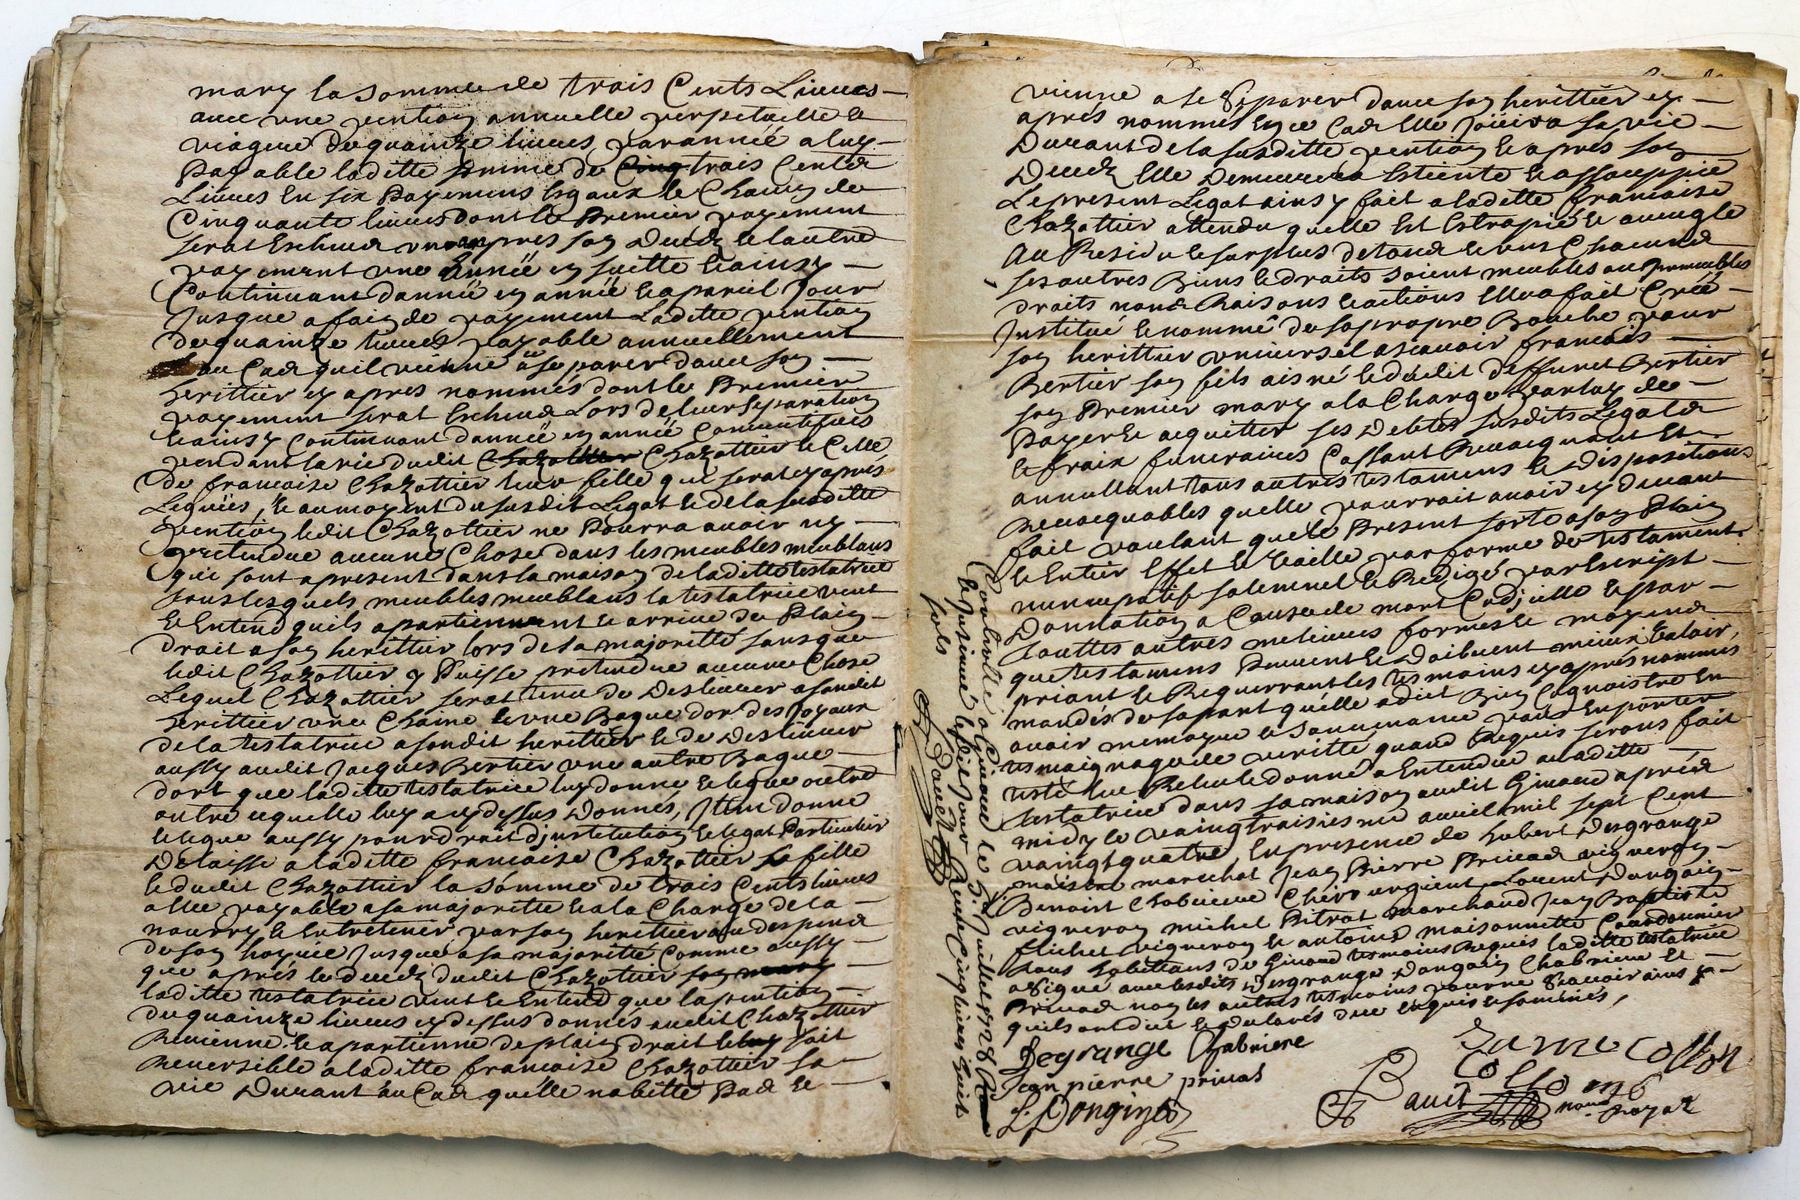 mary la somme de trois Cents Livres
avec une pention annuelle perpetuelle et
viagere de quainze livres par année a luy
payable laditte somme de Cinq trois Cents
Livres En six payemens Egaux de Chacun de
Cinquante livres dont le Premier payement
serat Escheud un an apres son Deced et lautre
payement une Année en suitte et ainsy
Continuant dannée en année et a pareil Jour
Jusque a fain de payement Laditte pention
de quainze livres payable annuellement
au Cas quil vienne a se separer davec son
herittier cy apres nommés dont le Premier
payement serat Escheud Lors de leur separation
Et ainsy Continuant dannée en année Consecutifves
pendant la vie dudit Chazottier Chazottier et Celle
De francoise Chazottier leur fille qui serat cy après
Leguées, et au moyent du susdit Legat et de la susditte
pention ledit Chazottier ne Pourra avoir ny
pretendue aucune Chose dans les meubles meublans
qui sont a present dans la maison de laditte testatrice
tous lesquels meubles meublans la testatrice veut
Et Entend quils apartiennent et arrive de Plain
droit a son herittier lors de sa majoritté sans que
ledit Chazottier y Puisse pretendue aucune Chose
Lequel Chazottier serat tenu de Deslivrer a sondit
herittier une Chaine et une Bague dor des Joyaux
de la testatrice a sondit herittier et de Deslivrer
aussy audit Jacques Bertier une autre Bague
dort que laditte testatrice luy donne et legue outre
outre ce quelle luy a cy dessus Donnés, Item donne
et legue aussy pour droit djnstitution et legat Particulier
Delaisse a laditte francoise Chazottier sa fille
et dudit Chazottier la sômme de trois Cents livres
a elle payable a sa majoritté et a la Charge de la
nourry et Entretenir par son herittier au despend
de son hoyrie Jusque a sa majoritté Comme aussy
que après le deced dudit Chazottier son mary
laditte testatrice veut et Entend que la pention
de quainze livres cy dessus donnés audit Chazottier
Revienne et apartienne de plain droit et soit
Reversible a laditte francoise Chazottier sa
vie Durant au Cas quélle nabitte Pas et
vienne a se Separer davec son herittier cy
après nommés En ce Cas Elle Jouira sa vie
Durant de la susditte pention et apres son
Deced Elle Demeurera Estiente et assouppie
Le present Legat ainsy fait a laditte francoise
Chazottier attendu quelle Est Estropié et aveugle
Au Residu et surplus de tous et uns Chacuns
ses autres Biens et droits soient meubles ou Jmmeubles
droits noms Raisons et actions Elle a fait Créé
Jnstitué et nommé de sa propre Bouche pour
son herittier universel ascavoir francois
Bertier son fils aisné et dudit deffunct Bertier
son Premier mary a la Charge par luy de
Payer et acquitter ses Debtes susdits Legats
et fraix funeraires Cassant Revacquant Et
annullant tous autres testamens et Dispositions
Revacquables quelle pourrait avoir cy devant
fait voulant que le Present sorte a son Plain
et Entier Effet et Vaille par forme de testament
nuncupatif solemnel et Redigé par Escript
Donnation a Cause de mort Codjcille et par
touttes autres melieures formes et moyens
que testamens Peuvent et Doibvent mieux Valoir,
priant et Requerrant les tesmains cy aprés nommés
mandés de sa part quélle a dict Bien Cognoistre En
avoir memoyre et souvenance pour En porter
tesmaignage de veritté quand Requis serons fait
testé lue Relue et donné a Entendre a laditte
testatrice dans sa maison audit Givord aprés
midy le vaingt traisiesme avril mil sept Cent
vaingt quatre, En presence de hubert Desgrange
maistre marechat Jean Pierre Privad vigneron
Benoist Chabriere Chirourgient Laurent Dongain
vigneron michel Pitrat marchand Jean Baptiste
flichet vigneron et antoine maisonnette Cordonnier
tous habittans de Givord tesmoins Requis laditte testatrice
a signé avec lesdits Desgrange Dongain Chabriere et
Privad non les autres tesmoins pour ne Scavoir ainsy
quils ont dit et declarés de ce enquis et sommés,
Degrange Chabriere
Jean pierre privas
L. Dongin
Collomb
nore Royal
Controllé a Givord le 5e Juillet 1728 R
et Jnsinué ledit Jour Recu Cinq livres huit
sols